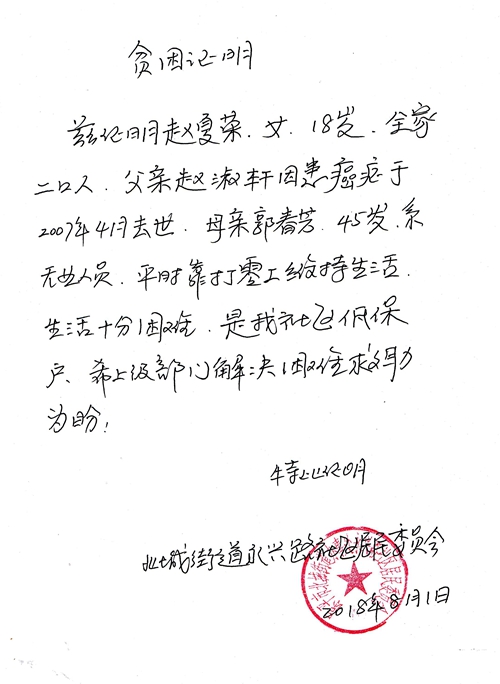 贫困证明
兹证明赵夏荣、女、18岁、全家
二口人、父亲赵淑轩因患癌症于
2007年4月去世、母亲郭春芳、45岁、系
无业人员、平时靠打零工维持生活、
生活十分困难、是我社区低保
户、希上级部门解决困难救助
为盼!
特此证明
北城街道永兴路社区居民委员会
2018年8月1日